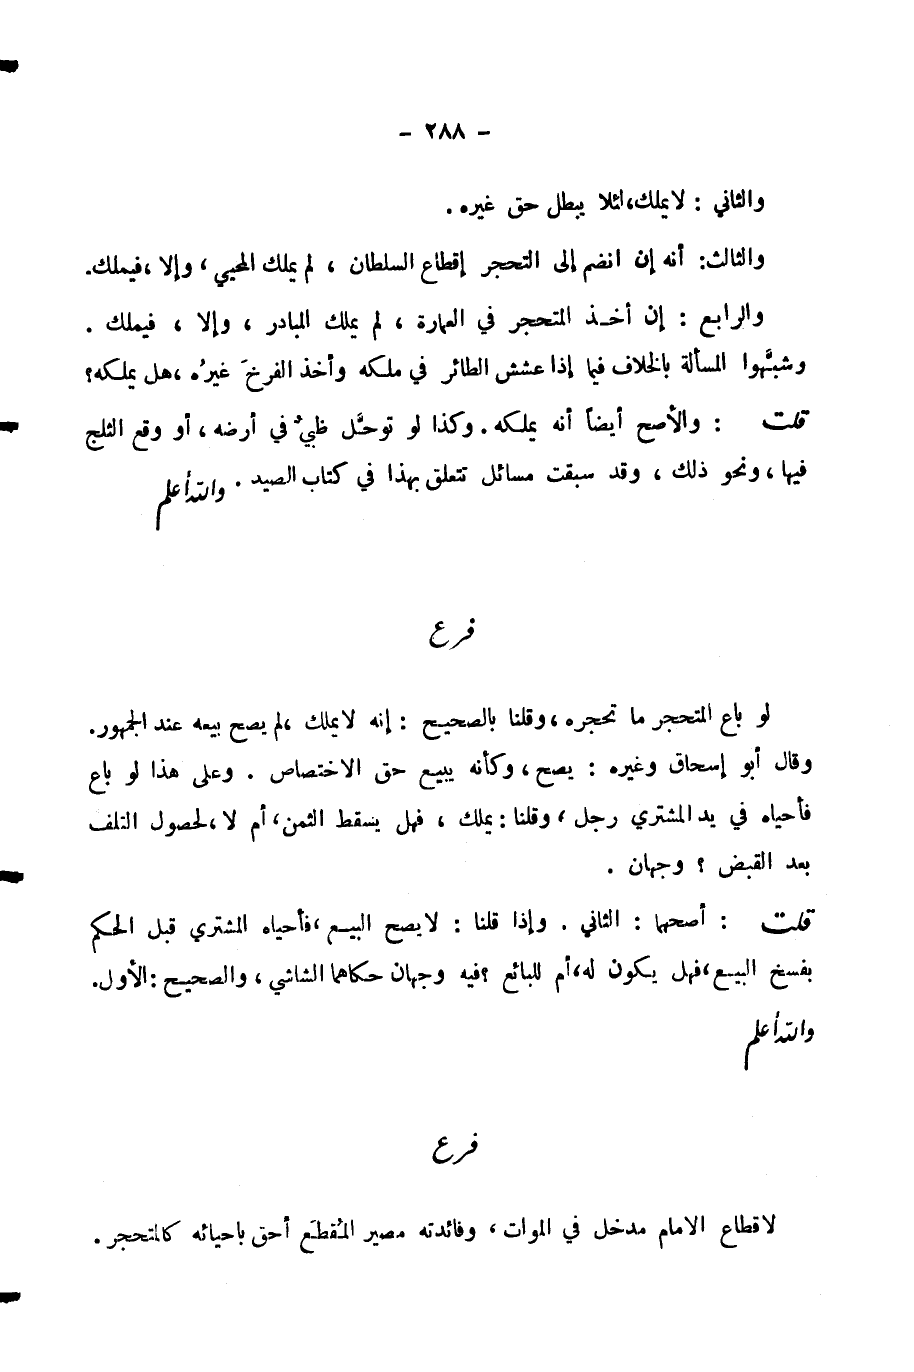 - ٢٨٨ -
والثاني : لا يملك، لئلا يبطل حق غيره .
والثالث: أنه إن انضم إلى التحجر إقطاع السلطان ، لم يملك المحيي ، وإلا ، فيملك.
والرابع : إن أخذ المتحجر في العمارة ، لم يملك المبادر ، وإلا ، فيملك .
وشبَّهوا المسألة بالخلاف فيما إذا عشش الطائر في ملكه وأخذ الفرخَ غيرُه ، هل يملكه؟
قلت : والأصح أيضاً أنه يملكه . وكذا لو توحَّل ظبيٌ في أرضه ، أو وقع الثلج
فيها ، ونحو ذلك ، وقد سبقت مسائل تتعلق بهذا في كتاب الصيد . والله أعلم
فرع
لو باع المتحجر ما تحجره ، وقلنا بالصحيح : إنه لا يملك ، لم يصح بيعه عند الجمهور.
وقال أبو إسحاق وغيره : يصح ، وكأنه يبيع حق الاختصاص . وعلى هذا لو باع
فأحياه في يد المشتري رجل ، وقلنا : يملك ، فهل يسقط الثمن ، أم لا ، لحصول التلف
بعد القبض ؟ وجهان .
قلت : أصحها : الثاني . وإذا قلنا : لا يصح البيع ، فأحياه المشتري قبل الحكم
بفسخ البيع ، فهل يكون له ، أم للبائع ؟ فيه وجهان حكاهما الشاشي ، والصحيح : الأول.
والله أعلم
فرع
لاقطاع الامام مدخل في الموات ، وفائدته مصير المُقطَع أحق باحيائه كالمتحجر .